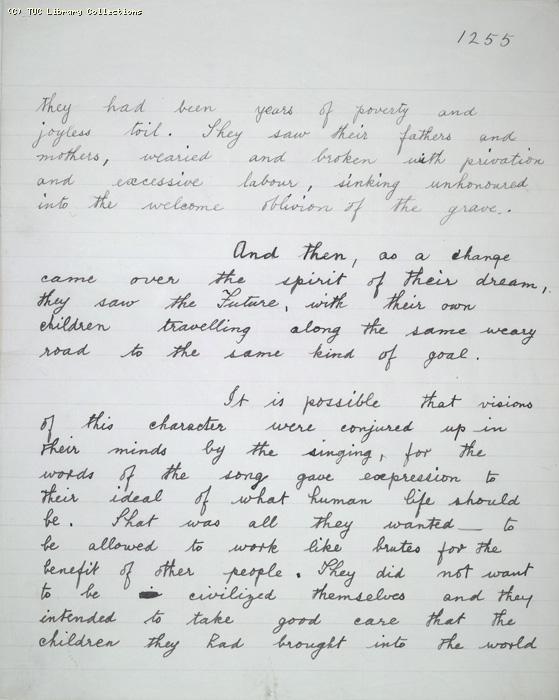 (C) TUC Library Collections
1255
they had been years of poverty and
joyless toil. They saw their fathers and
mothers, wearied and broken with privation
and excessive labour, sinking unhonoured
into the welcome oblivion of the grave..
And then, as a change
came over the spirit of their dream,
they saw the Future, with their own
children travelling along the same weary
road to the same kind of goal.
It is possible that visions
of this character were conjured up in
their minds by the singing, for the
words of the song gave expression to
their ideal of what human life should
be. That was all they wanted — to
be allowed to work like brutes for the
benefit of other people. They did not want
to be civilized themselves and they
intended to take good care that the
children they had brought into the world